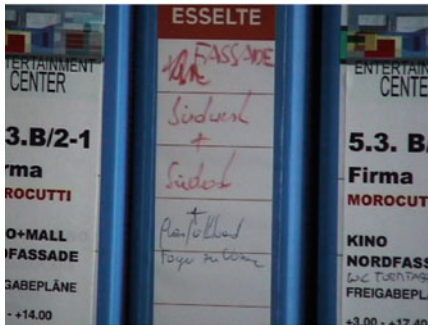 ERTAINMENT
CENTER
3.B/2-1
rma
ROCUTTI
O+MALL
DFASSADE
GABEPLÄNE
- +14.00
ESSELTE
FASSADE
Südwest
+
Südost
+
ENTERTAIN
CENTE
5.3. B/
Firma
MOROCUT
KINO
NORDFASS
WC
FREIGABEPL
+3.00 - +17.40